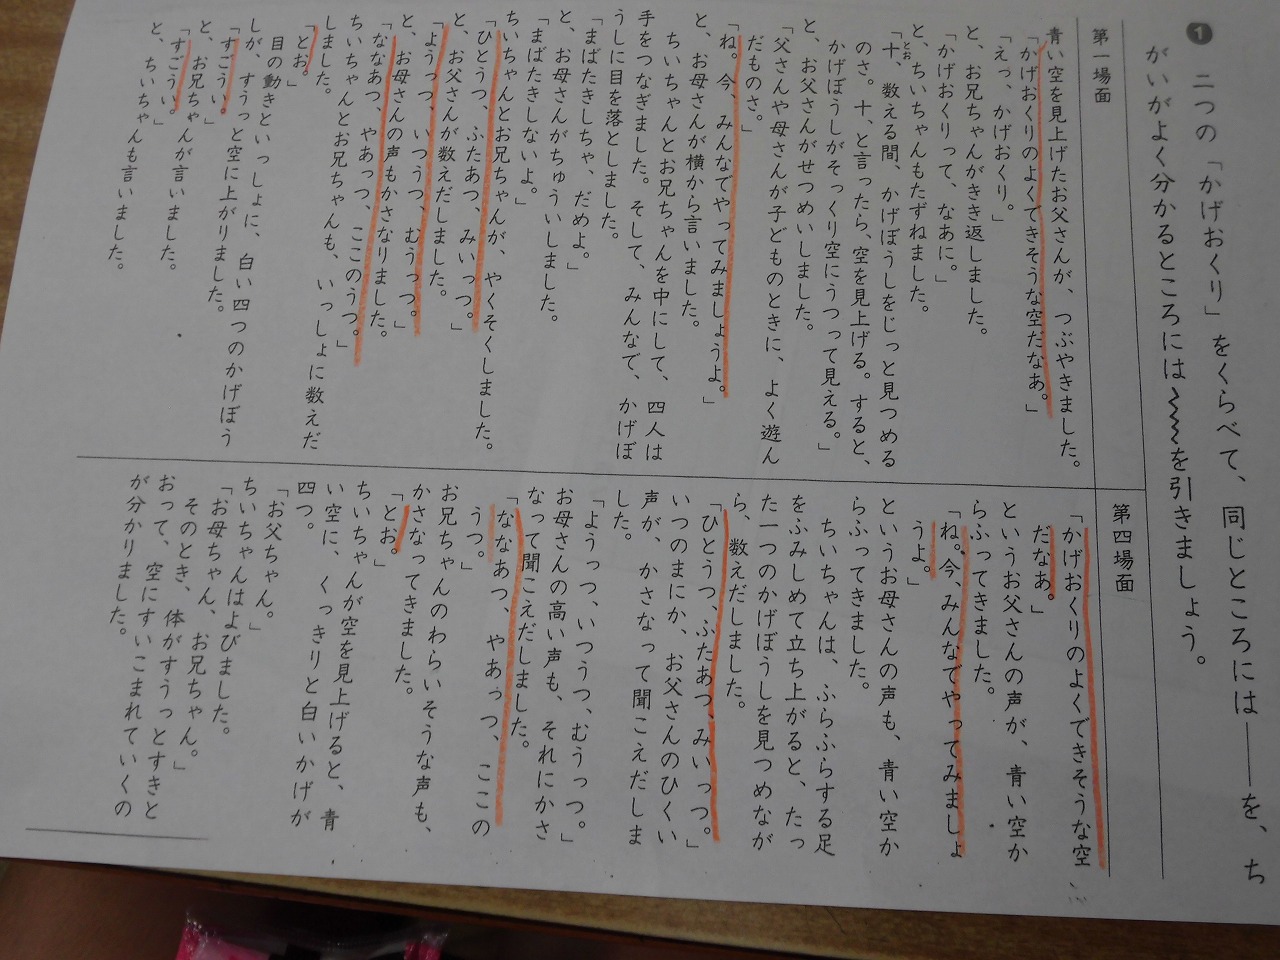 ❶ 二つの「かげおくり」をくらべて、同じところには――を、ち
がいがよく分かるところには〰〰を引きましょう。
第一場面
青い空を見上げたお父さんが、つぶやきました。
「かげおくりのよくできそうな空だなあ。」
「えっ、かげおくり。」
と、お兄ちゃんがきき返しました。
「かげおくりって、なあに。」
と、ちいちゃんもたずねました。
「十、数える間、かげぼうしをじっと見つめる
とお
のさ。十、と言ったら、空を見上げる。すると、
かげぼうしがそっくり空にうつって見える。」
と、お父さんがせつめいしました。
「父さんや母さんが子どものときに、よく遊ん
だものさ。」
「ね。今、みんなでやってみましょうよ。」
と、お母さんが横から言いました。
ちいちゃんとお兄ちゃんを中にして、四人は
手をつなぎました。そして、みんなで、かげぼ
うしに目を落としました。
「まばたきしちゃ、だめよ。」
と、お母さんがちゅういしました。
「まばたきしないよ。」
ちいちゃんとお兄ちゃんが、やくそくしました。
「ひとうつ、ふたあつ、みいっつ。」
と、お父さんが数えだしました。
「ようっつ、いつうつ、むうっつ。」
と、お母さんの声もかさなりました。
「ななあつ、やあっつ、ここのうつ。」
ちいちゃんとお兄ちゃんも、いっしょに数えだ
しました。
「とお。」
目の動きといっしょに、白い四つのかげぼう
しが、すうっと空に上がりました。
「すごうい。」
と、お兄ちゃんが言いました。
「すごうい。」
と、ちいちゃんも言いました。
第四場面
「かげおくりのよくできそうな空
だなあ。」
というお父さんの声が、青い空か
らふってきました。
「ね。今、みんなでやってみましょ
うよ。」
というお母さんの声も、青い空か
らふってきました。
ちいちゃんは、ふらふらする足
をふみしめて立ち上がると、たっ
た一つのかげぼうしを見つめなが
ら、数えだしました。
「ひとうつ、ふたあつ、みいっつ。」
いつのまにか、お父さんのひくい
声が、かさなって聞こえだしま
した。
「ようっつ、いつうつ、むうっつ。」
お母さんの高い声も、それにかさ
なって聞こえだしました。
「ななあつ、やあっつ、ここの
うつ。」
お兄ちゃんのわらいそうな声も、
かさなってきました。
「とお。」
ちいちゃんが空を見上げると、青
い空に、くっきりと白いかげが
四つ。
「お父ちゃん。」
ちいちゃんはよびました。
「お母ちゃん、お兄ちゃん。」
そのとき、体がすうっとすきと
おって、空にすいこまれていくの
が分かりました。